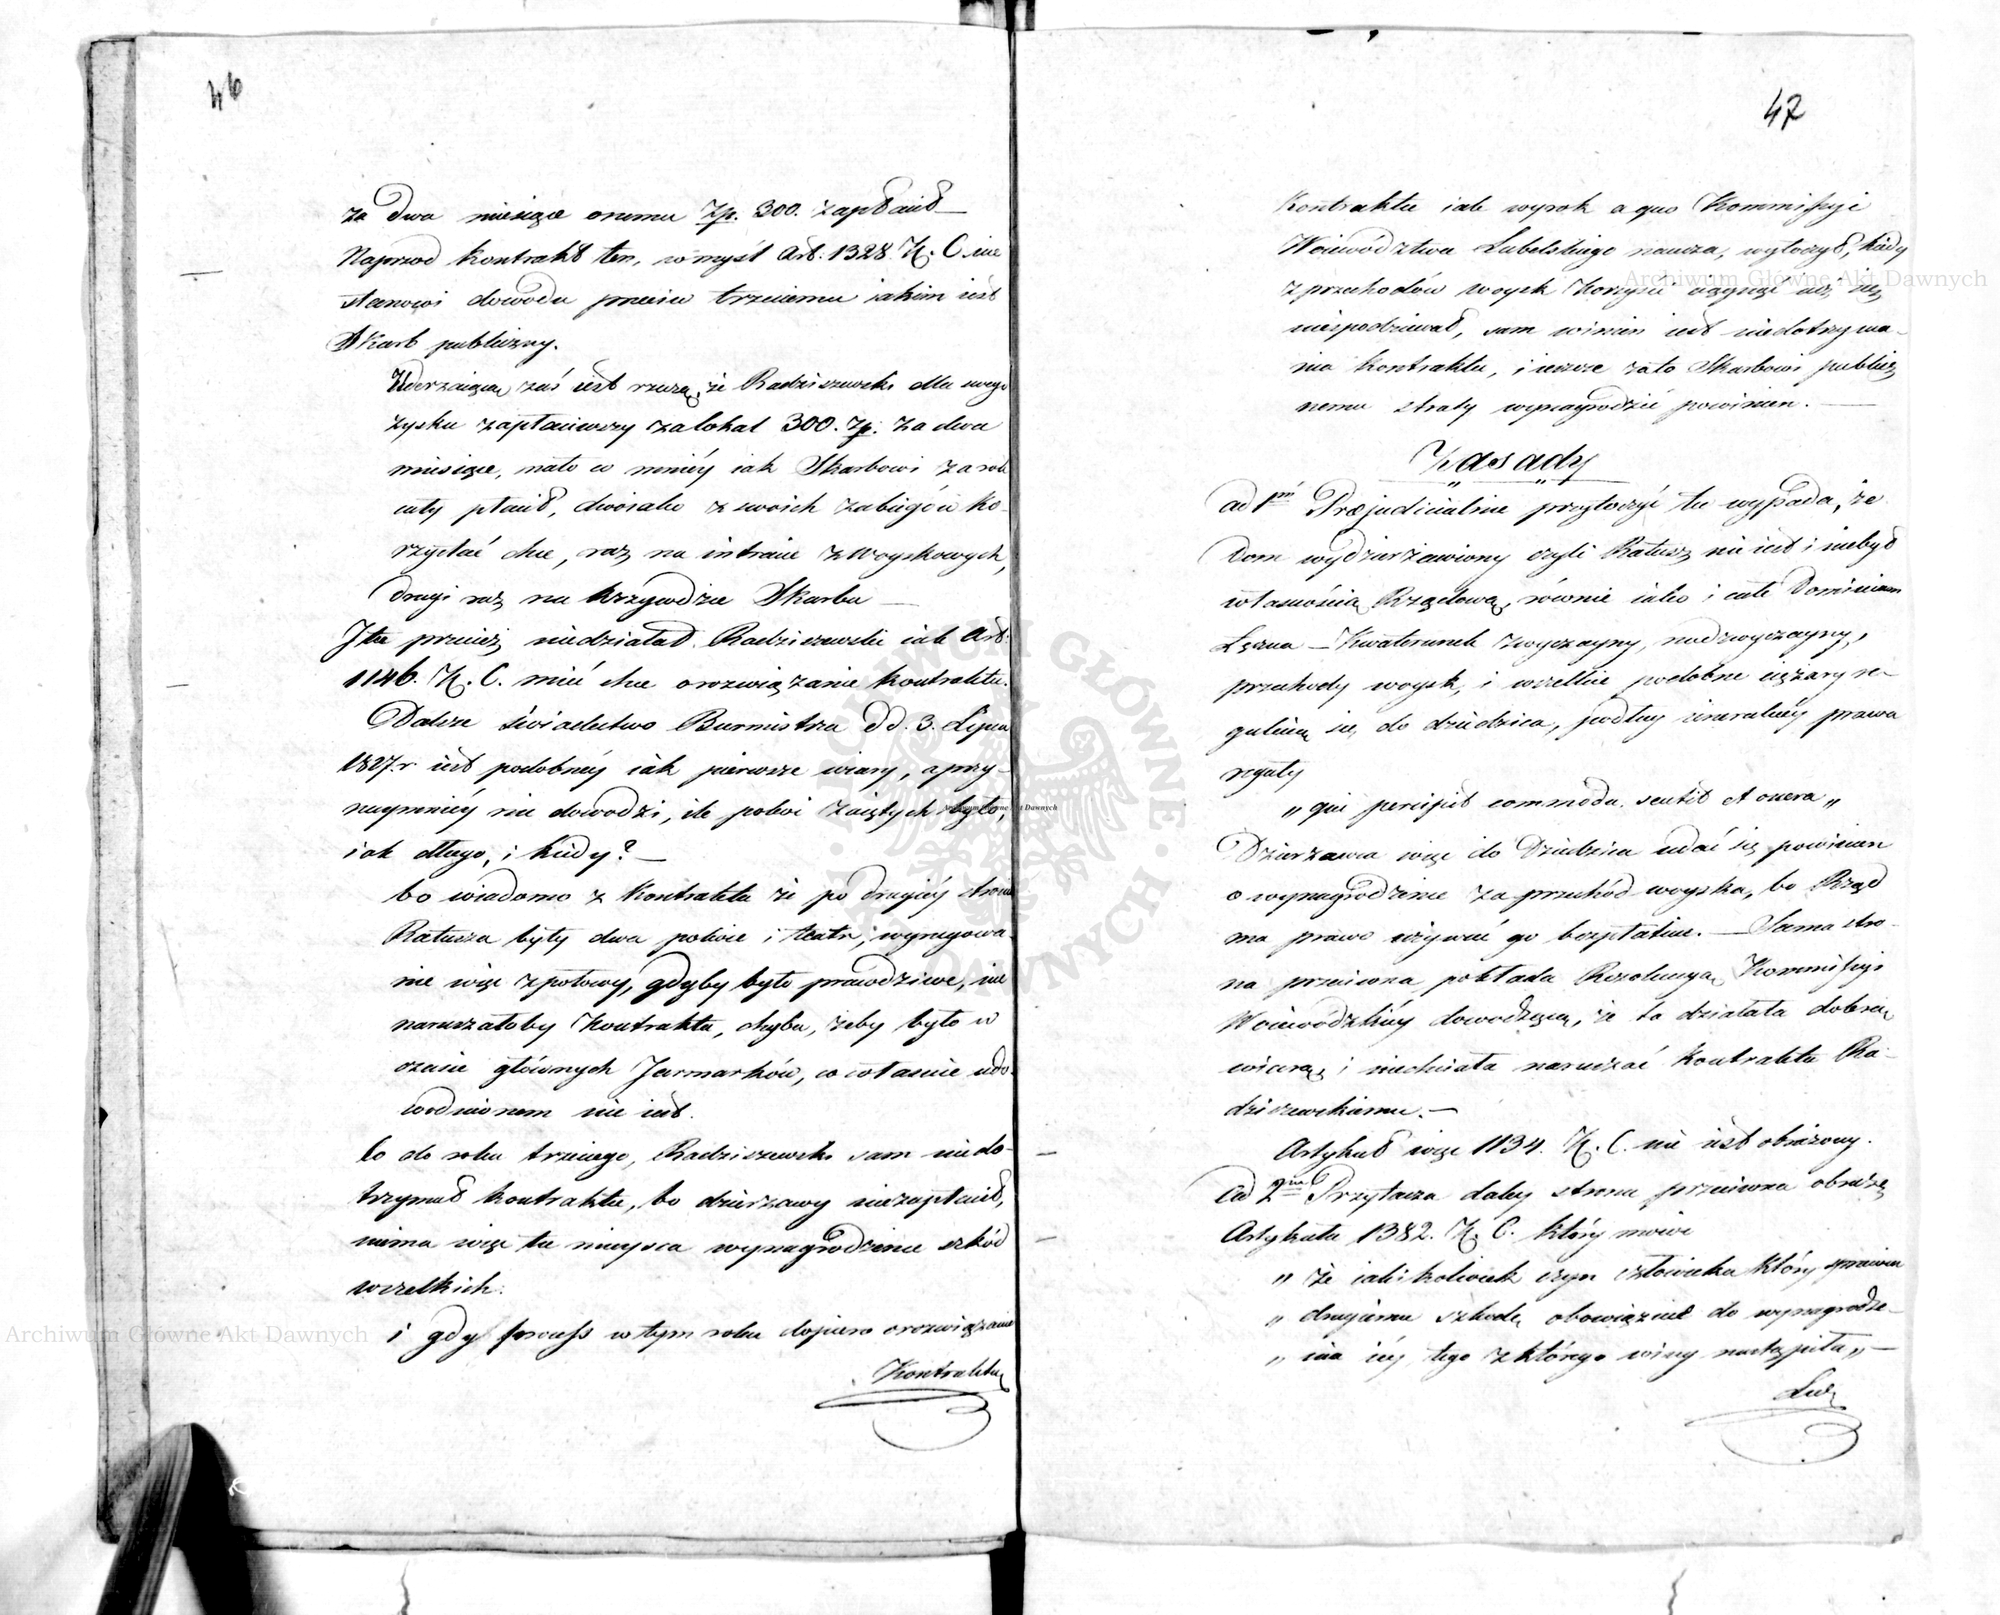 46
za dwa miesiące onemu Zp. 300. zapłacił —
Naprzod kontrakt ten, w myśl Art: 1328 K. C. nie
stanowi dowodu przeciw trzeciemu jakim iest
Skarb publiczny.
Uderzaiącą zaś iest rzeczą, że Radziszewski dla swego
zysku zapłaciwszy za lokal 300. Zp. za dwa
miesiące, nato w mniéy iak Skarbowi za rok
cały płacił, dwoiako z swoich zabiegów ko-
rzystać chce, raz na intracie z Woyskowych,
drugi raz na krzywdzie Skarbu —
I tu przecież niedziałał Radziszewski iak Art:
1146. K. C. mieć chce o rozwiązanie kontraktu.
Dalsze świadectwo Burmistrza dd. 3. Lipca
1827. r. iest podobnéy iak pierwsze wiary, a przy-
naymniéy nie dowodzi, ile pokoi zaiętych było,
iak długo, i kiedy? —
bo wiadomo z Kontraktu że po drugiéy stronie
Ratusza były dwa pokoie i teatr, wyrugowa-
nie więc z połowy, gdyby było prawdziwe, nie
naruszałoby Kontraktu, chyba, żeby było w
czasie głównych Jarmarków, co właśnie udo-
wodnionem nie iest.
Co do roku trzeciego, Radziszewski sam niedo-
trzymał kontraktu, bo dzierżawy niezapłacił,
niema więc tu mieysca wynagrodzenie szkód
wszelkich.
i gdy process w tym roku dopiero o rozwiązanie
Kontraktu
47
Kontraktu iak wyrok a quo Kommissyi
Woiewództwa Lubelskiego naucza, wytoczył, kiedy
z przechodów woysk korzyści ciągnąć iuż się
niespodziewał, sam winien iest niedotrzyma-
nia kontraktu, i ieszcze zato Skarbowi publicz-
nemu straty wynagrodzić powinien. —
Zasady
ad 1m Præjudicialnie przytoczyć tu wypada, że
Dom wydzierżawiony czyli Ratusz nie iest i niebył
własnością Rządową, równie iako i całe Dominium
Łęczna — Kwaterunek zwyczayny, nadzwyczayny,
przechody woysk, i wszelkie podobne ciężary re-
guluią się do dziedzica, podług ieneralnéy prawa
reguły
„ qui percipit commoda sentit et onera „
Dzierżawca więc do Dziedzica udać się powinien
o wynagrodzenie za przechód woyska, bo Rząd
ma prawo używać go bezpłatnie. — Sama stro-
na przeciwna pokłada Rezolucyą Kommissyi
Woiewódzkiéy dowodzącą, że ta działała dobrą
wiarą, i niechciała naruszać kontraktu Ra-
dziszewskiemu. —
Artykuł więc 1134. K. C. nie iest obrażony.
Ad 2um Przytacza daléy strona przeciwna obrazę
Artykułu 1382. K. C. który mówi
„ że iakikolwiek czyn człowieka który sprawia
„ drugiemu szkodę obowiązuie do wynagrodze-
„ nia iéy tego z którego winy nastąpiła „ —
Lecz
Archiwum Główne Akt Dawnych
Archiwum Główne Akt Dawnych
Archiwum Główne Akt Dawnych
ARCHIWUM GŁÓWNE AKT DAWNYCH